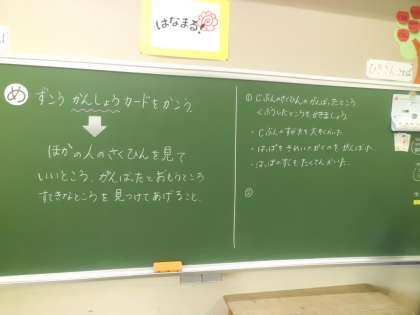 はなまる!
め ずこう かんしょう カードを かこう。
ほかの人のさくひんを見て
いいところ、がんばったとおもうところ
すてきなところを 見つけてあげること。
① じぶんのさくひんの がんばったところ
くふうしたところをかきましょう。
・じぶんのすがたを大きくかいた
・はっぱを
・はっぱのすじもたくさんかいた。
②